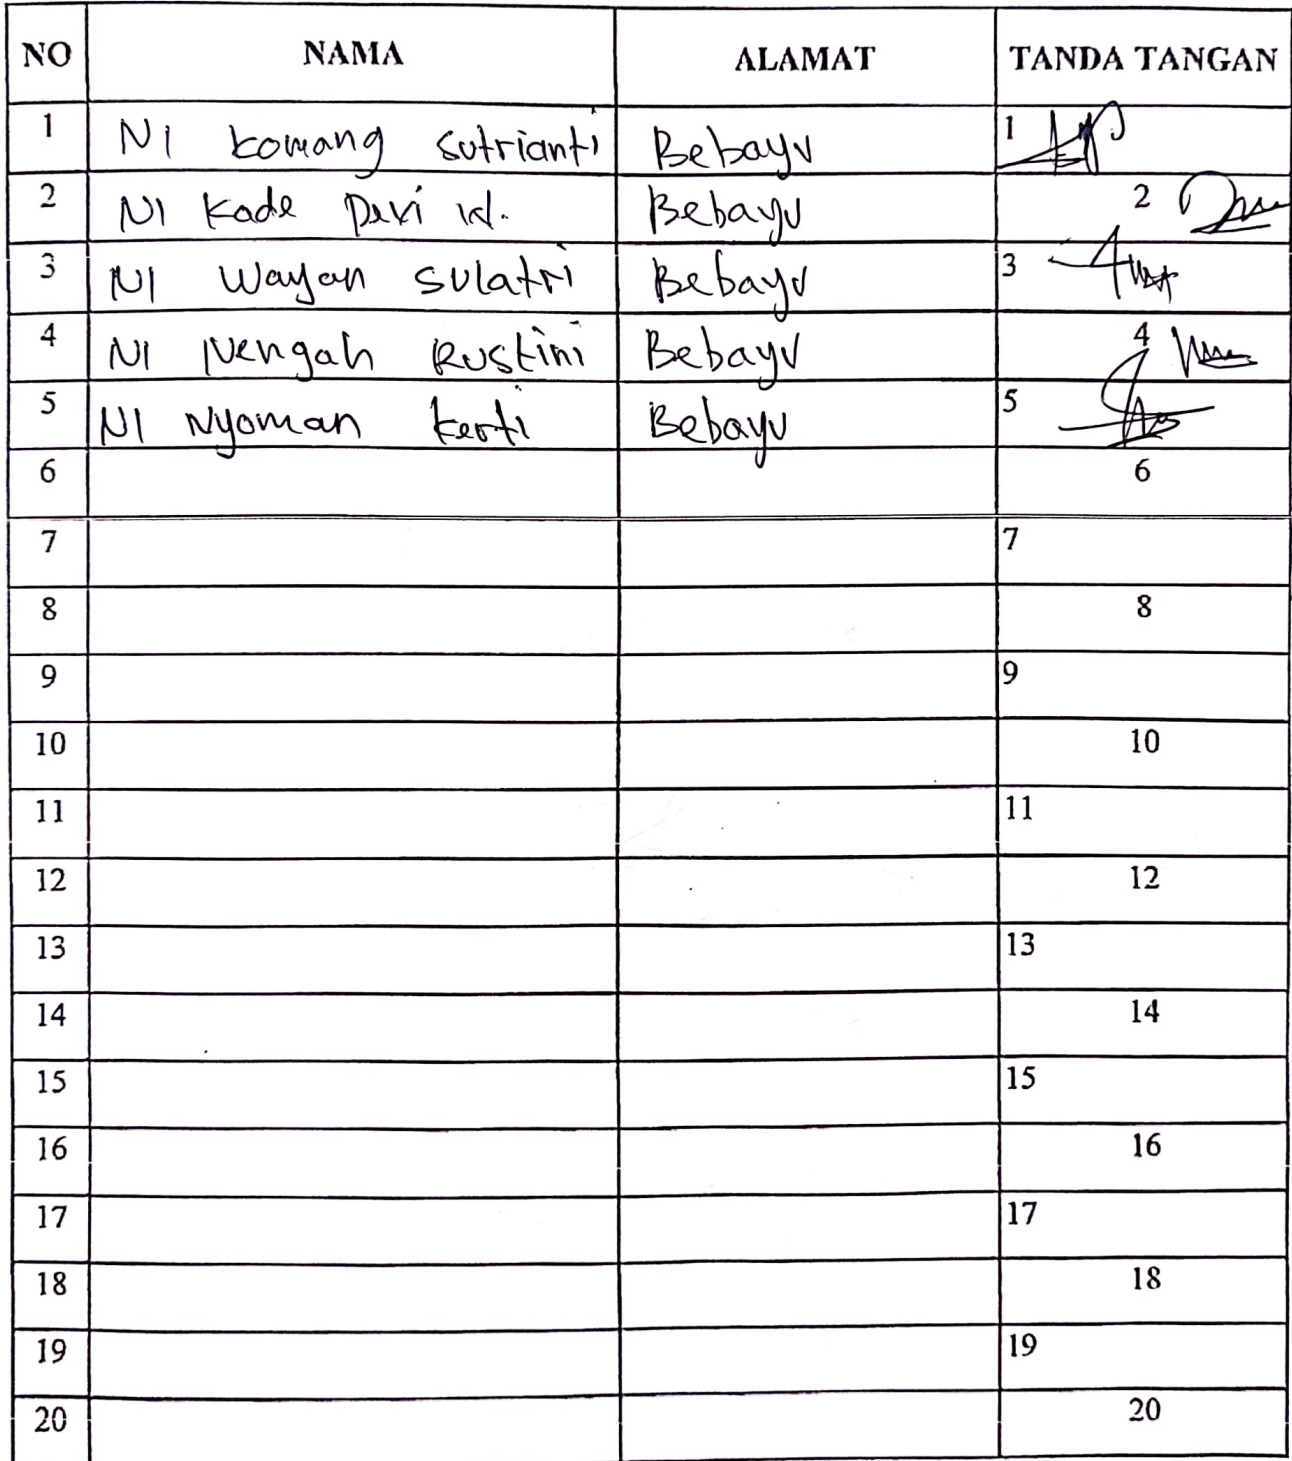 NO NAMA ALAMAT TANDA TANGAN
1 NI komang sutrianti Bebayu 1
2 NI Kade Devi 2 Bebayu
3 NI Wayan sulatri Bebayu 3
4 NI Nengah Rustini Bebayu 4
5 NI Nyoman kerti Bebayu 5
6 6
7 7
8 8
9 9
10 10
11 11
12 12
13 13
14 14
15 15
16 16
17 17
18 18
19 19
20 20